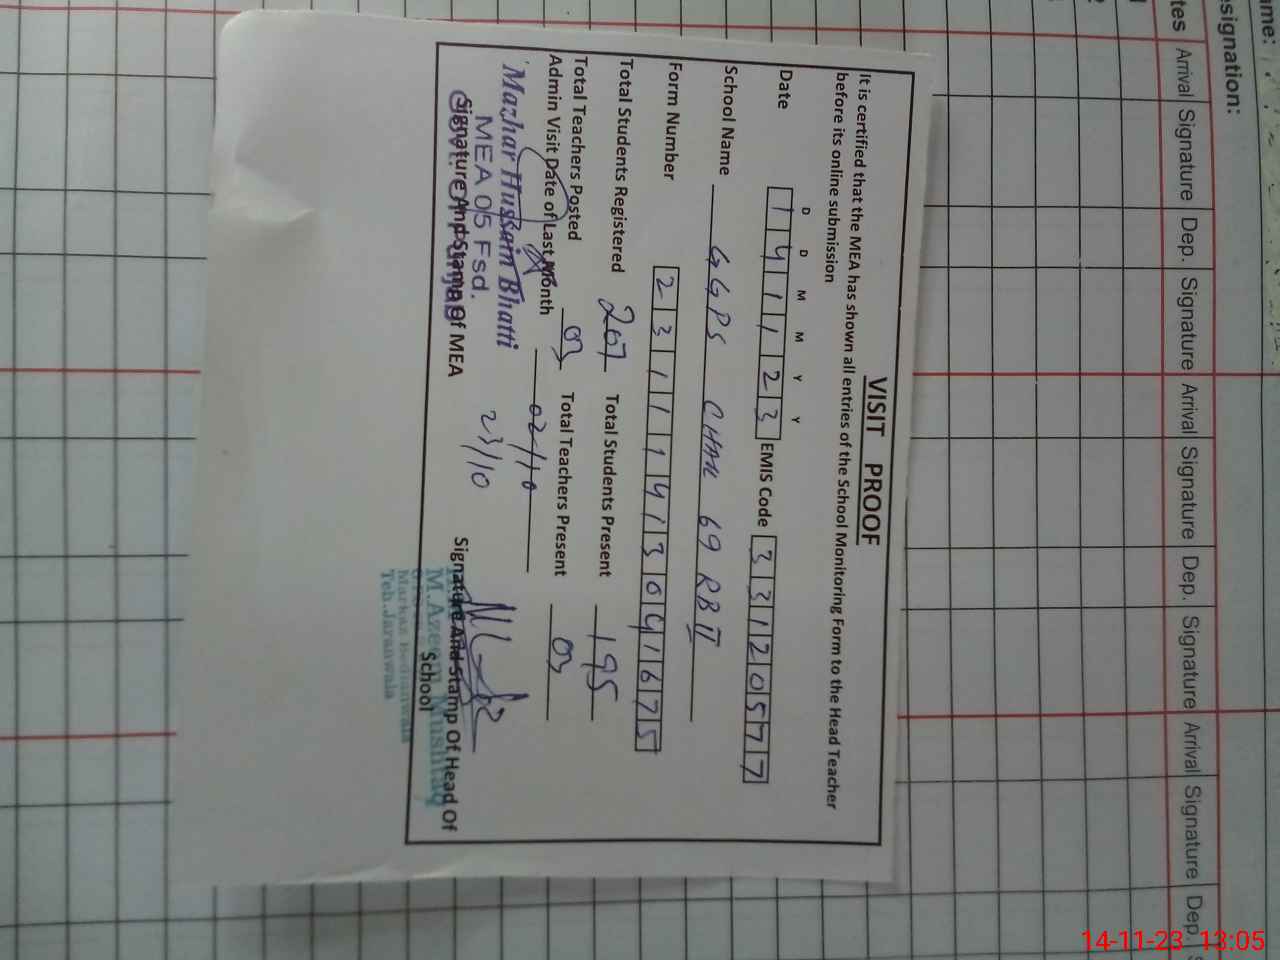 VISIT PROOF
It is certified that the MEA has shown all entries of the School Monitoring Form to the Head Teacher
before its online submission
D D M M Y Y
Date 1 4 1 1 2 3 EMIS Code 3 3 1 2 0 5 7 7
School Name GGPS CHAK 69 RB II
Form Number 2 3 1 1 1 4 1 3 0 4 1 6 7 5
Total Students Registered 207 Total Students Present 195
Total Teachers Posted 03 Total Teachers Present 03
Admin Visit Date of Last Month 02/10
23/10
Mazhar Hussain Bhatti
MEA 05 Fsd.
Signature And Stamp Of MEA
Signature And Stamp Of Head Of
School
M.Azeem
Markaz
Teh.Jaranwala
ame:
esignation:
tes Arrival Signature Dep. Signature Arrival Signature Dep. Signature Arrival Signature Dep.
14-11-23 13:05